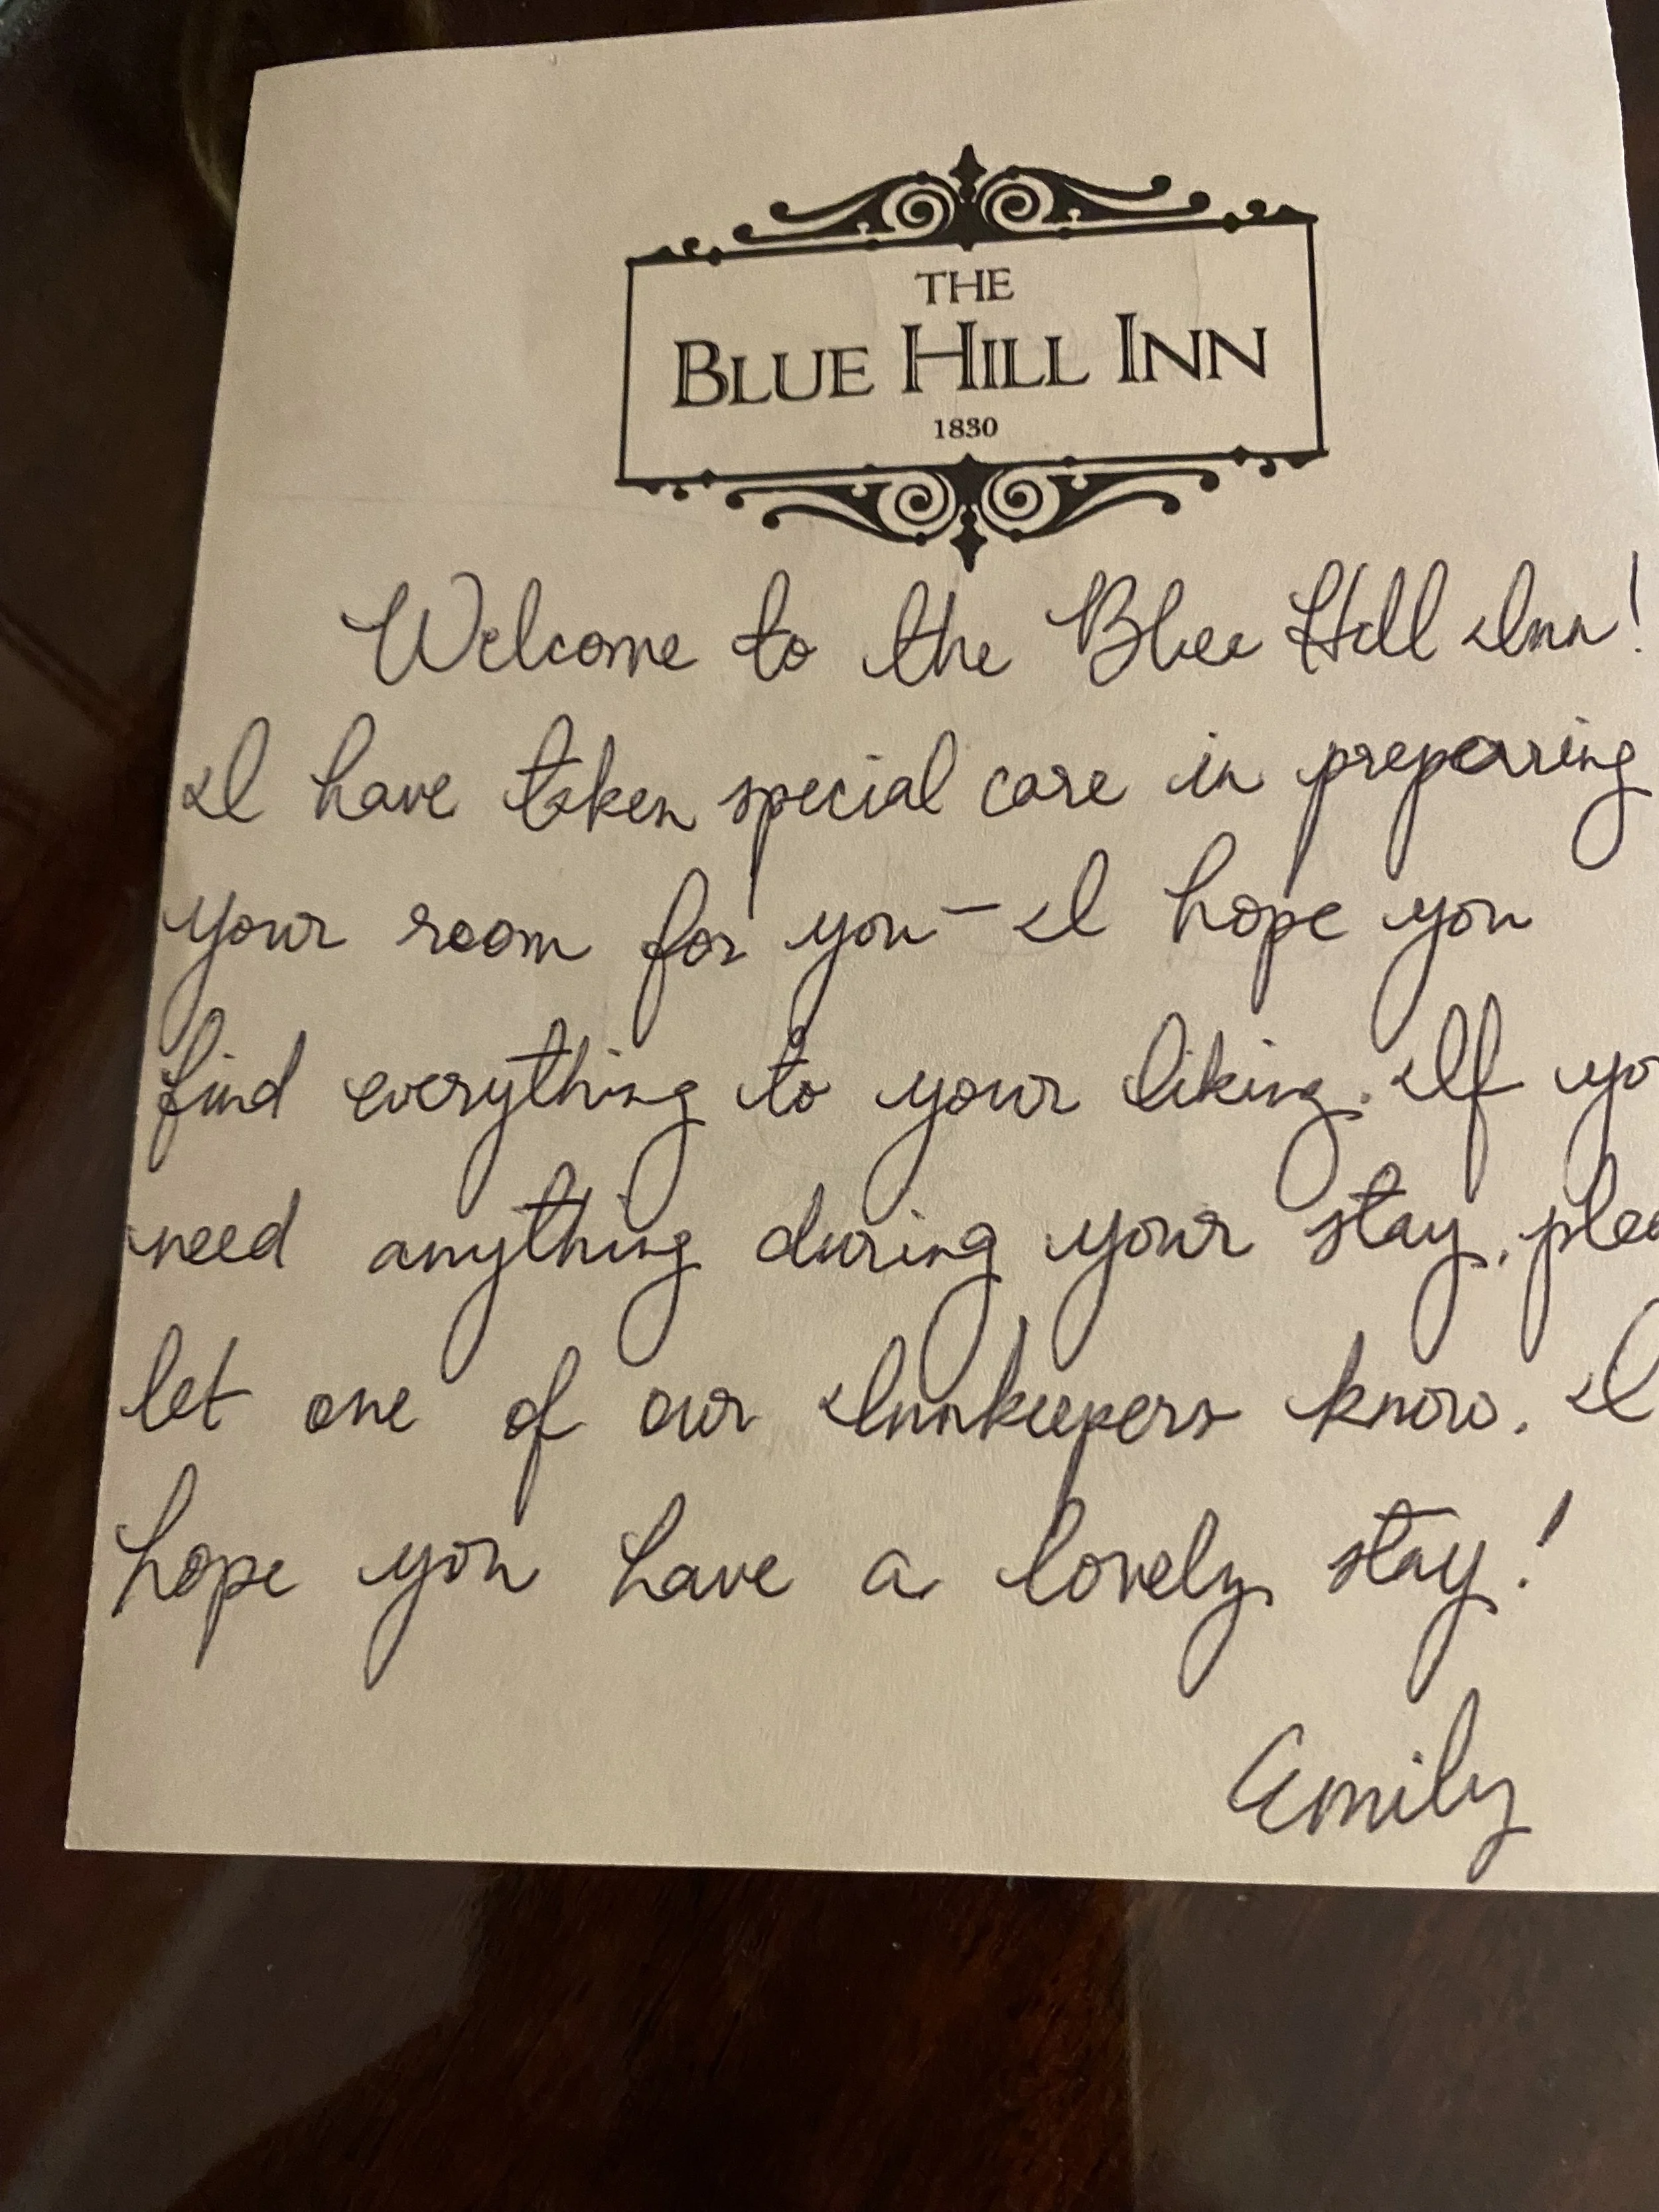 THE
BLUE HILL INN
1830
Welcome to the Blue Hill Inn!
I have taken special care in preparing
your room for you - I hope you
find everything to your liking. If yo
need anything during your stay, plea
let one of our Innkeepers know. I
hope you have a lovely stay!
Emily